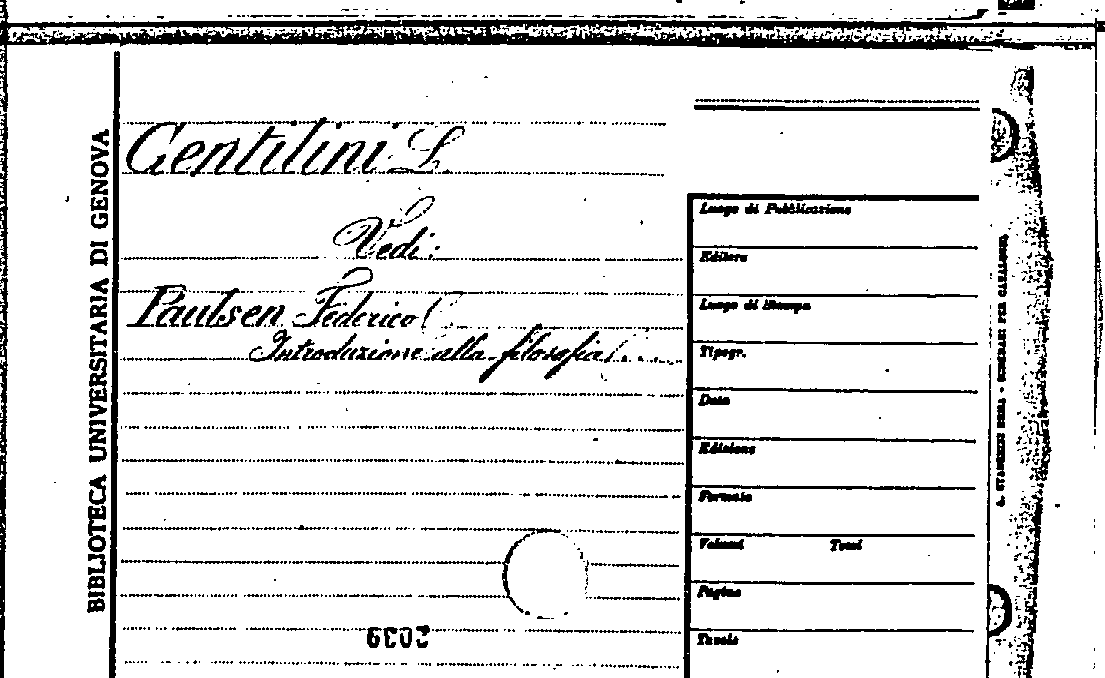 BIBLIOTECA UNIVERSITARIA DI GENOVA
Gentilini L.
Vedi:
Paulsen Federico
Introduzione alla filosofia
Luogo di Pubblicazione
Editore
Luogo di Stampa
Tipogr.
Data
Edizione
Formato
Volumi Tomi
Pagine
Tavole
2039